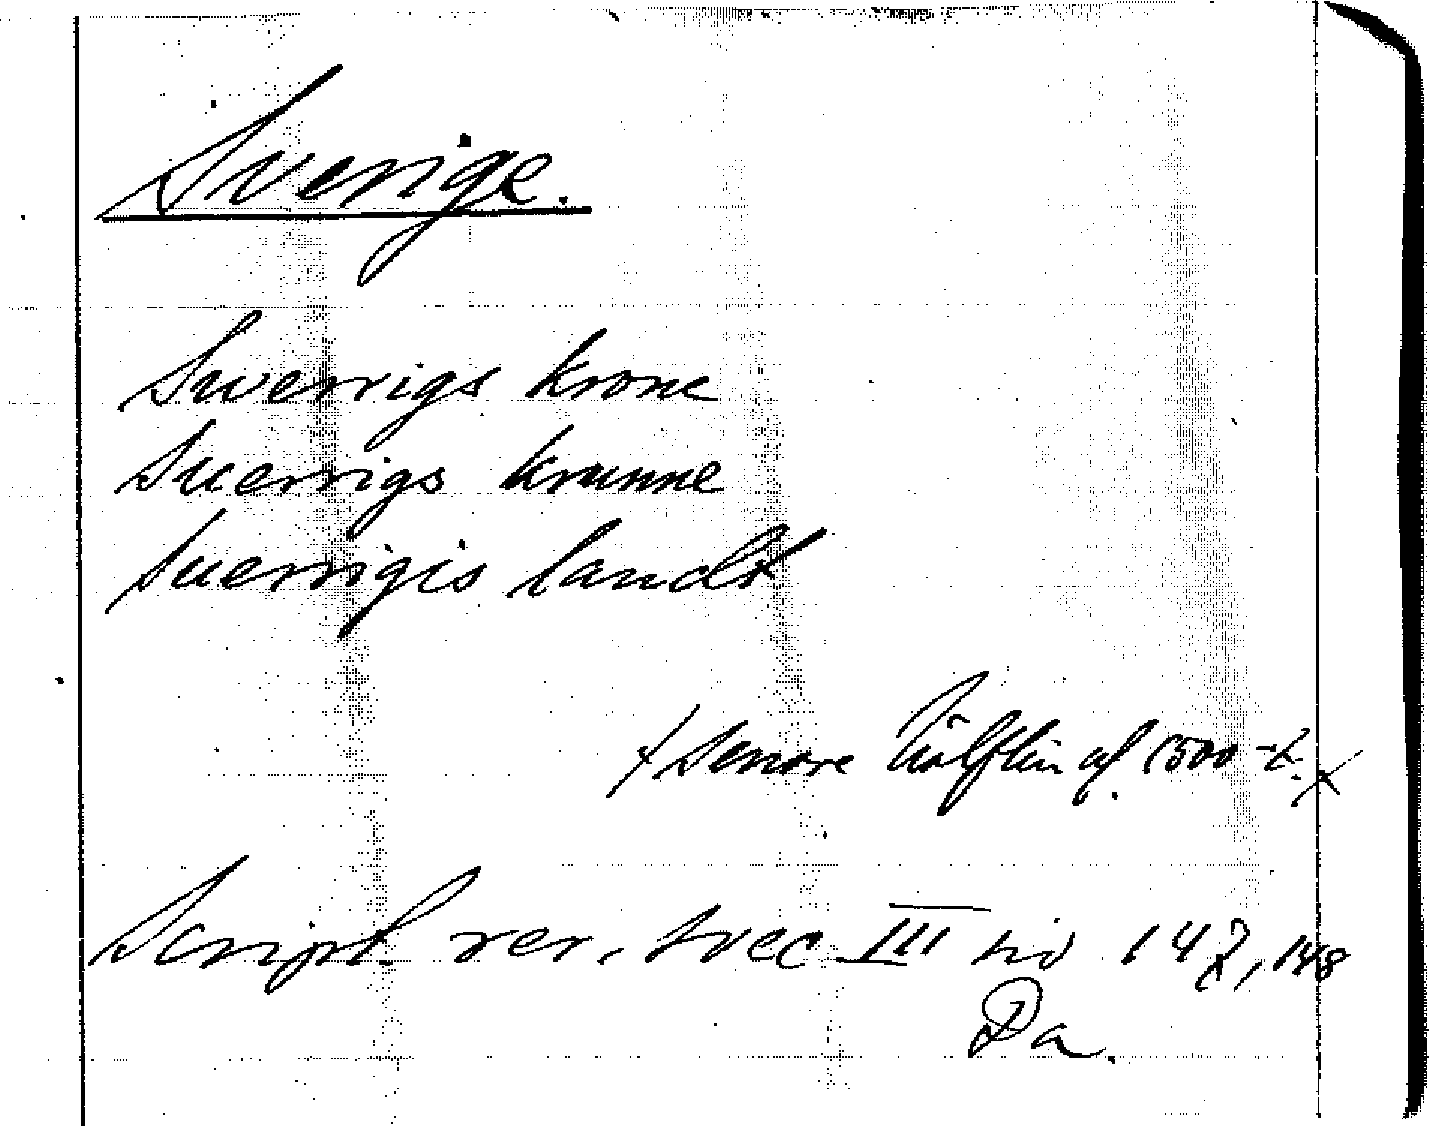 Sverige.
Swerrigs krone
Suerrigs krunne
Suerrigis landt
/ Senare hälften af 1500-t. /
Script. rer. svec III sid 147, 148
Pa.